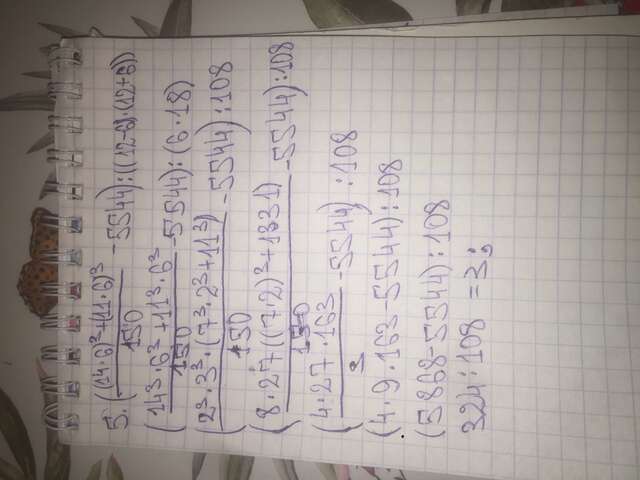 5. ((14·6)³+(11·6)³/150 -5544):((12-6)·(12+6))
(14³·6³+11³·6³/150 -5544):(6·18)
(2³·3³·(7³·2³+11³)/150 -5544):108
(8·27((7·2)³+1331)/150 -5544):108
(4·27·163/3 -5544):108
(4·9·163-5544):108
(5868-5544):108
324:108=3;